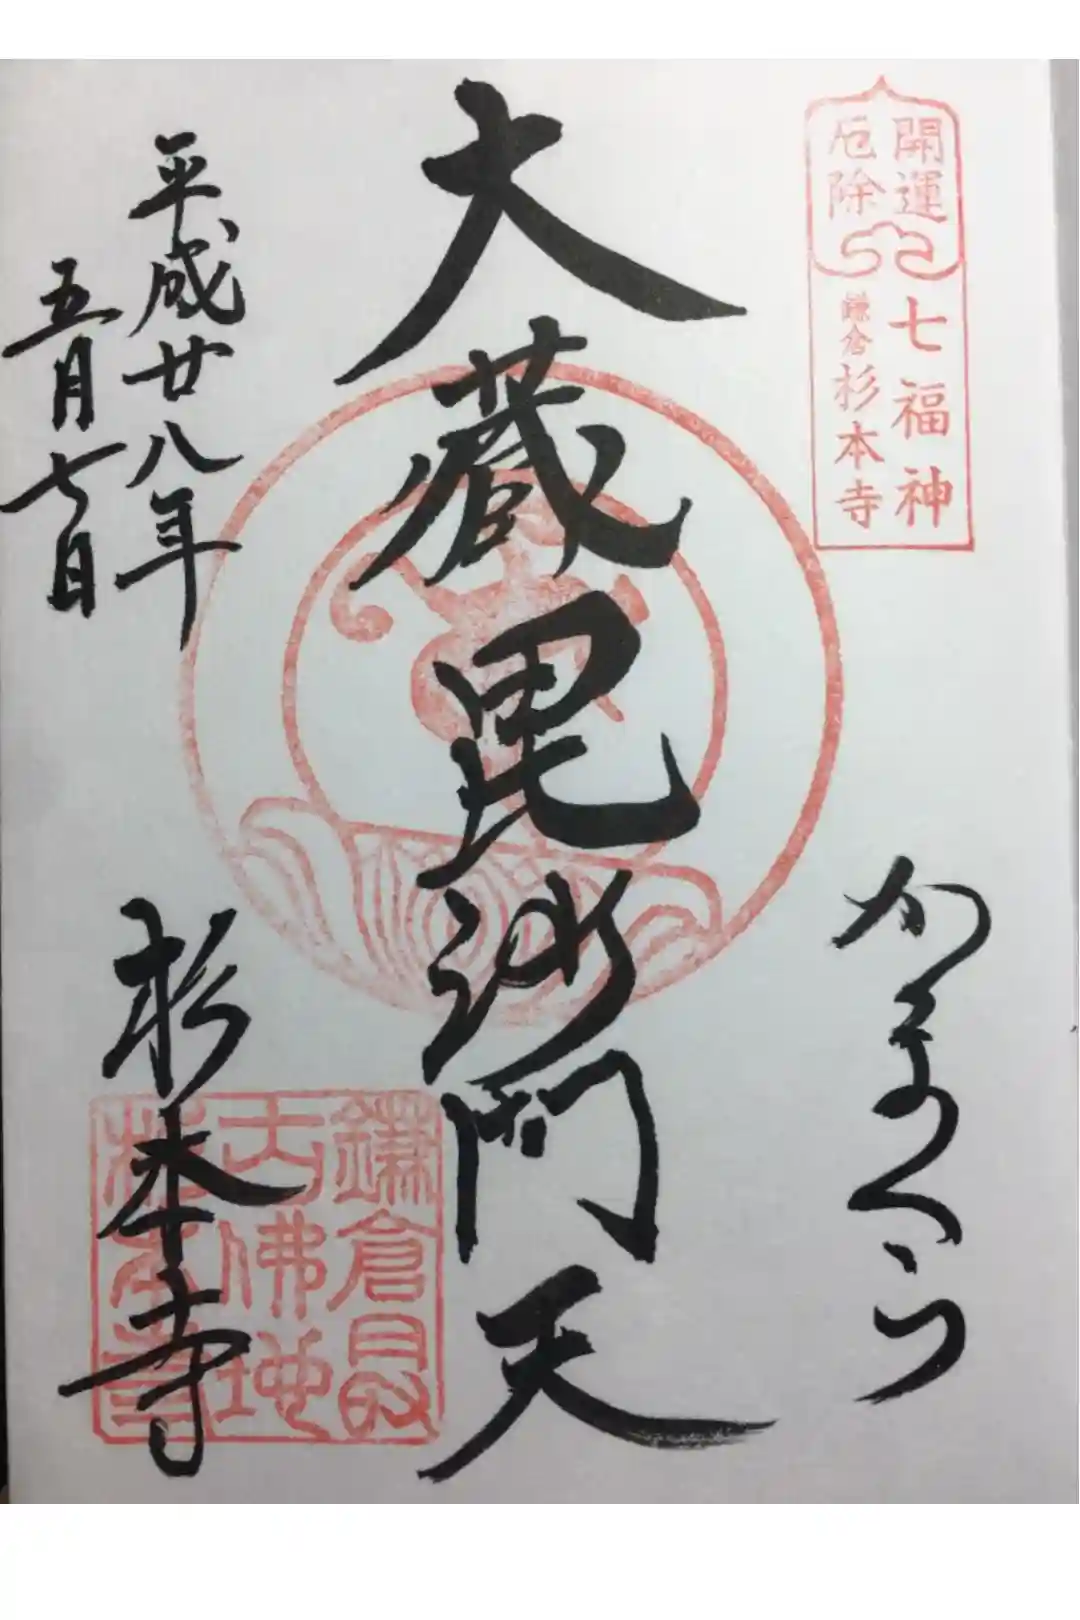 開運
厄除
七福神
鎌倉杉本寺
かまくら
大蔵毘沙門天
平成廿八年
五月七日
杉本寺
鎌倉最
古佛地
杉本寺